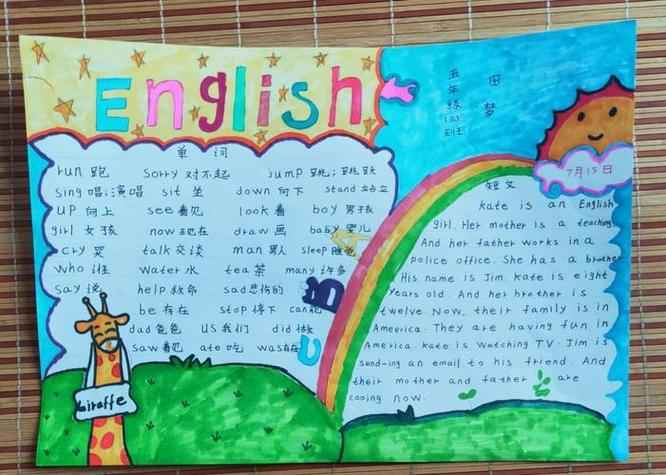 English
五年级(2)班
田梦
7月15日
单词
run 跑 sorry 对不起 jump 跳;跳跃
sing 唱;演唱 sit 坐 down 向下 stand 站立
up 向上 see 看见 look 看 boy 男孩
girl 女孩 now 现在 draw 画 baby 婴儿
cry 哭 talk 交谈 man 男人 sleep
who 谁 water 水 tea 茶 many 许多
say 说 help 救命 sad 悲伤的
be 存在 stop 停下 can 能
dad 爸爸 us 我们 did 做
saw 看见 ate 吃 was 存在
Giraffe
短文
Kate is an English
girl. Her mother is a teaching
And her father works in a
police office. She has a brother
His name is Jim. Kate is eight
years old. And her brother is
twelve. Now, their family is in
America. They are having fun in
America. Kate is watching TV. Jim is
sending an email to his friend. And
their mother and father are
cooing now.